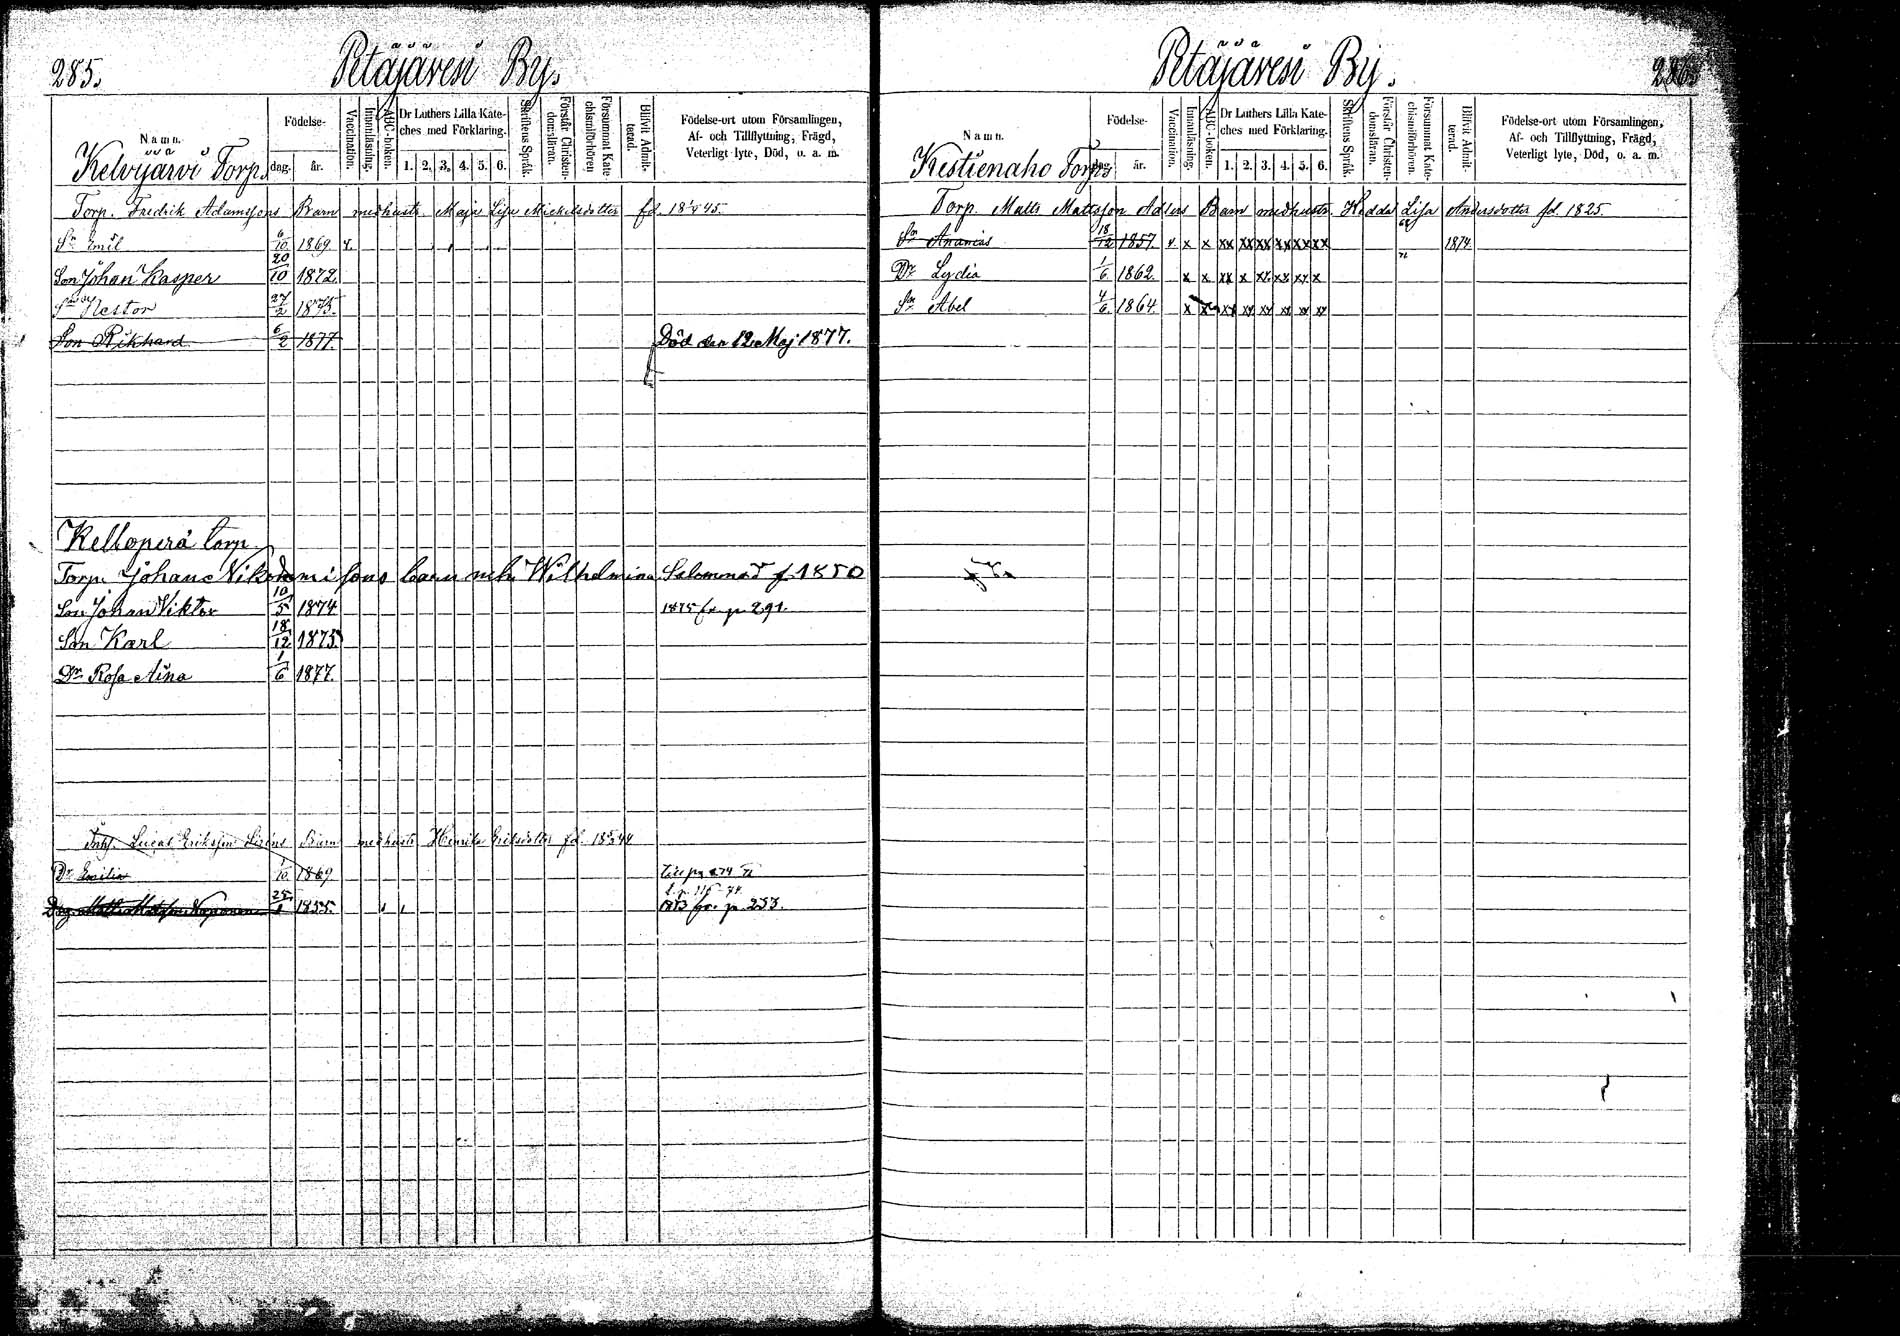 285.
Petäjäresi By.
Namn.
Födelse-
dag.
år.
Vaccination.
Innanläsning.
ABC-boken.
Dr Luthers Lilla Kate-
ches med Förklaring.
1. 2. 3. 4. 5. 6.
Skriftens Språk.
Förstår Christen-
domsläran.
Försummat Kate-
chismiförhören
Blifvit Admit-
terad.
Födelse-ort utom Församlingen,
Af- och Tillflyttning, Frägd,
Veterligt lyte, Död, o. a. m.
Kelvijärvi Torp.
Torp. Fredrik Adamssons Barn medhustr. Maja Lisa Mickelsdotter fd. 18 45.
Sn Emil 6/10 1869. v.
Son Johan Kasper 20/10 1872.
Sn Nestor 27/2 1875.
Son Rikhard 6/2 1877. Död den 12 Maj 1877.
Kelloperä torp
Torp. Johan Nikodemisons barn mhu Wilhelmina Salomonsd f 1850
Son Johan Viktor 10/5 1874 1875 fr. p. 291.
Son Karl 18/12 1875.
Dr Rosa Aina 1/6 1877.
Inh. Lucas Eriksson Barn medhustr Henrika Eriksdotter fd. 1844
Dr Emilia 1/10 1869. Till pag 274
25/1 1855. 1873 fr. p. 253.
286
Petäjäresi By.
Namn.
Födelse-
dag.
år.
Vaccination.
Innanläsning.
ABC-boken.
Dr Luthers Lilla Kate-
ches med Förklaring.
1. 2. 3. 4. 5. 6.
Skriftens Språk.
Förstår Christen-
domsläran.
Försummat Kate-
chismiförhören.
Blifvit Admit-
terad.
Födelse-ort utom Församlingen,
Af- och Tillflyttning, Frägd,
Veterligt lyte, Död, o. a. m.
Kestienaho Torp
Torp. Matts Mattsson Adlers Barn medhustr. Hedda Lisa Andersdotter fd. 1825.
Sn Ananias 18/12 1857. v x x xx xx xx xx xx xx 1874.
Dr Lydia 1/6 1862. x x xx x xx xx xx x
Sn Abel 4/6 1864. x x xx xx xx xx xx xx